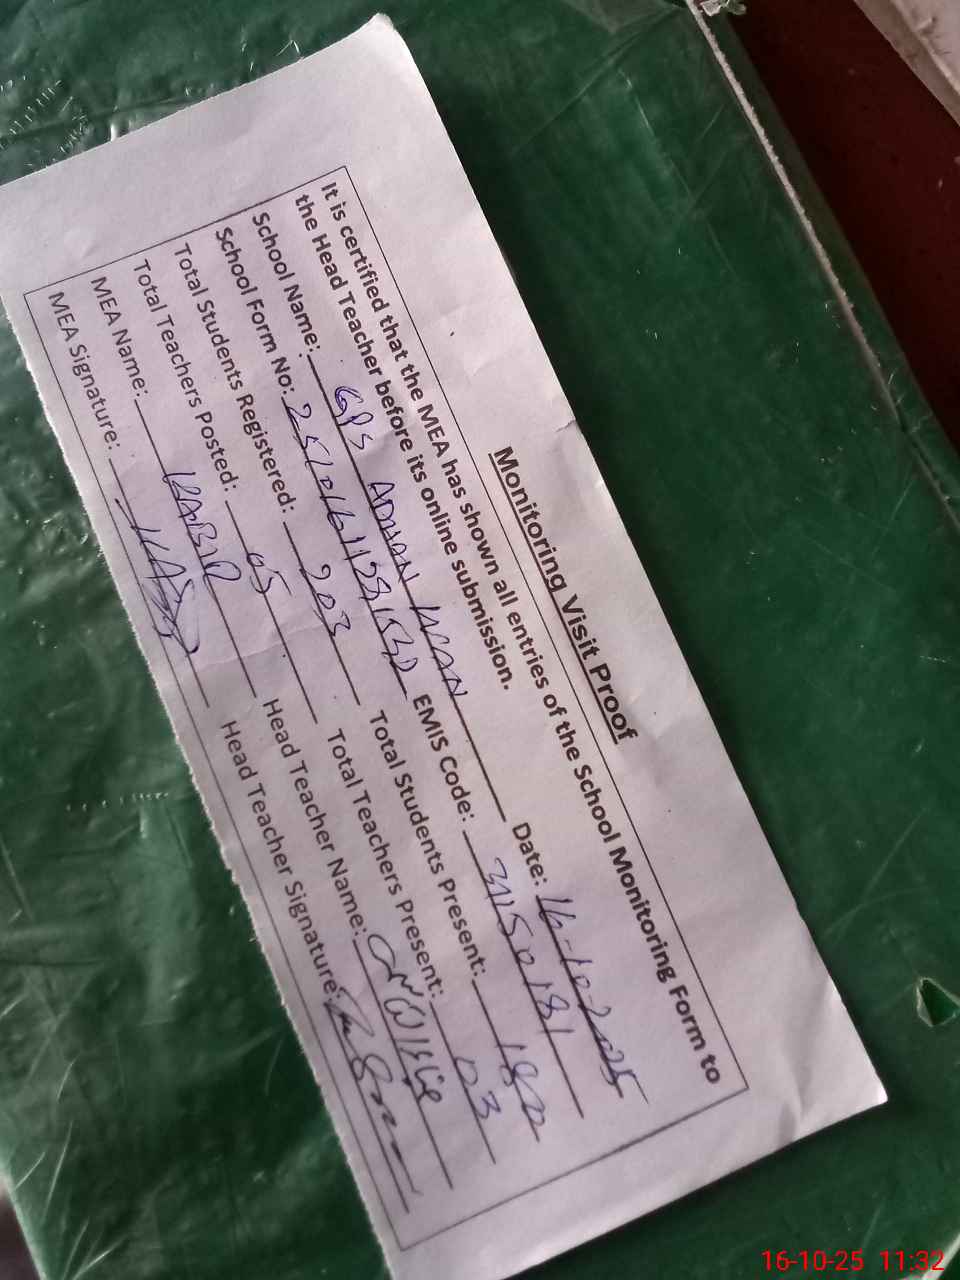 Monitoring Visit Proof
It is certified that the MEA has shown all entries of the School Monitoring Form to
the Head Teacher before its online submission.
School Name: GPS ADMAN Date: 16-10-2025
School Form No: EMIS Code: 31150181
Total Students Registered: 203 Total Students Present: 180
Total Teachers Posted: 05 Total Teachers Present: 03
MEA Name: KABIR Head Teacher Name:
MEA Signature: Head Teacher Signature:
16-10-25 11:32